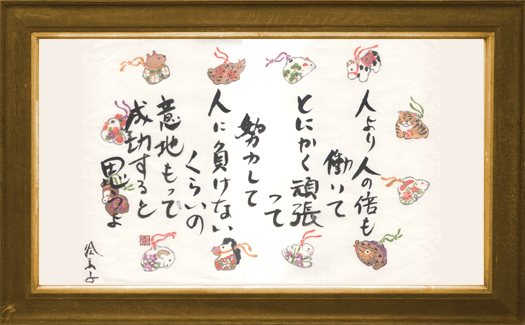 人より人の倍も
働いて
とにかく頑張
って
努力して
人に負けない
くらいの
意地もって
成功すると
思うよ